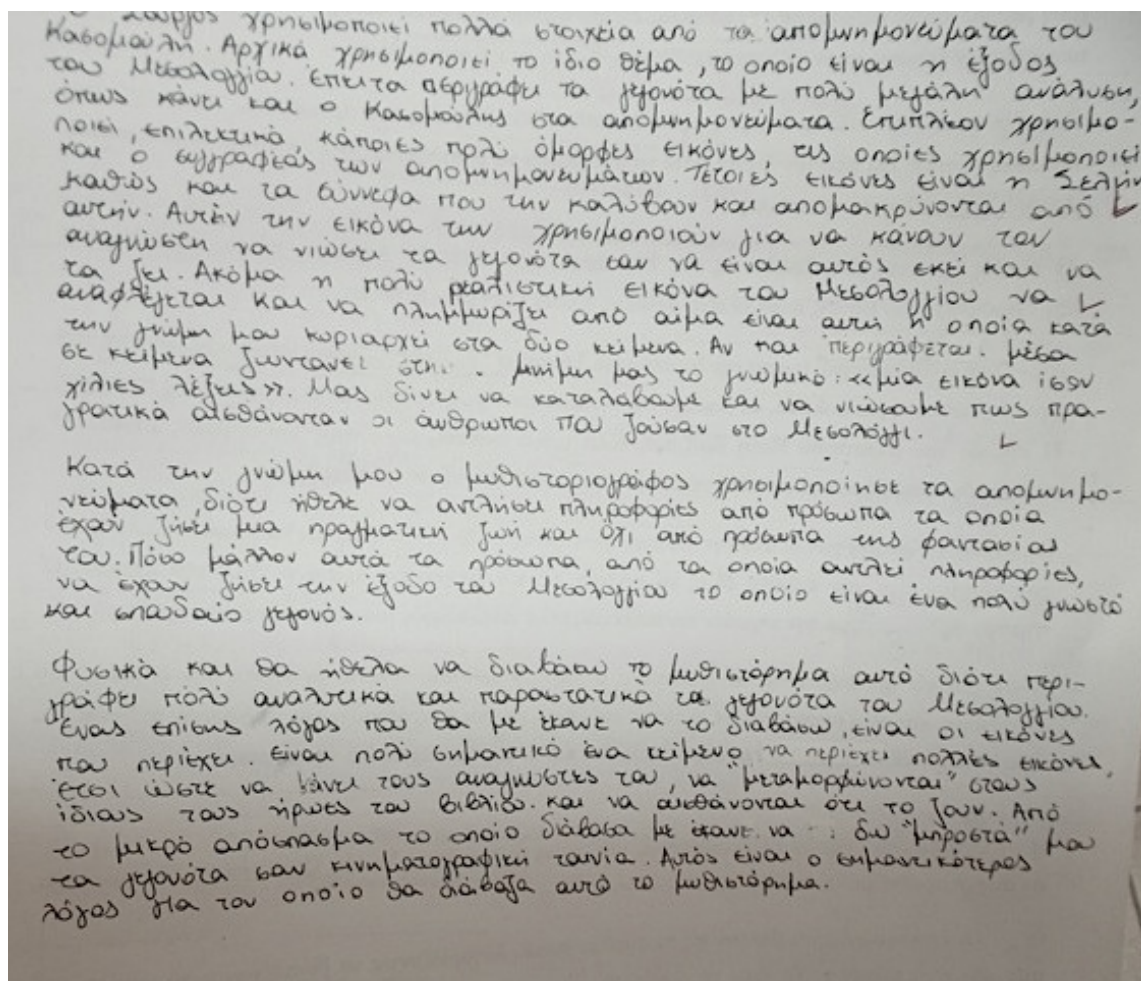 Ο Γιώργος χρησιμοποιεί πολλά στοιχεία από τα απομνημονεύματα του
Κασομούλη. Αρχικά χρησιμοποιεί το ίδιο θέμα, το οποίο είναι η έξοδος
του Μεσολογγίου. Έπειτα περιγράφει τα γεγονότα με πολύ μεγάλη ανάλυση,
όπως κάνει και ο Κασομούλης στα απομνημονεύματα. Επιπλέον χρησιμο-
ποιεί, επιλεκτικά, κάποιες πολύ όμορφες εικόνες, τις οποίες χρησιμοποιεί
και ο συγγραφέας των απομνημονευμάτων. Τέτοιες εικόνες είναι η Σελήν
καθώς και τα σύννεφα που την καλύβουν και απομακρύνονται από
αυτήν. Αυτήν την εικόνα την χρησιμοποιούν για να κάνουν τον
αναγνώστη να νιώσει τα γεγονότα σαν να είναι αυτός εκεί και να
τα ζει. Ακόμα η πολύ ρεαλιστική εικόνα του Μεσολογγίου να
αναφλέγεται και να πλημμυρίζει από αίμα είναι αυτή η οποία κατά
την γνώμη μου κυριαρχεί στα δύο κείμενα. Αν και περιγράφεται μέσα
σε κείμενα ζωντανεί στην μνήμη μας το γνωμικό: «μία εικόνα ίσον
χίλιες λέξεις». Μας δίνει να καταλάβουμε και να νιώσουμε πως πρα-
γματικά αισθάνονταν οι άνθρωποι που ζούσαν στο Μεσολόγγι.
Κατά την γνώμη μου ο μυθιστοριογράφος χρησιμοποίησε τα απομνημο-
νεύματα, διότι ήθελε να αντλήσει πληροφορίες από πρόσωπα τα οποία
έχουν ζήσει μια πραγματική ζωή και όχι από πρόσωπα της φαντασίας
του. Πόσο μάλλον αυτά τα πρόσωπα, από τα οποία αντλεί πληροφορίες,
να έχουν ζήσει την έξοδο του Μεσολογγίου το οποίο είναι ένα πολύ γνωστό
και σπουδαίο γεγονός.
Φυσικά και θα ήθελα να διαβάσω το μυθιστόρημα αυτό διότι περι-
γράφει πολύ αναλυτικά και παραστατικά τα γεγονότα του Μεσολογγίου.
Ένας επίσης λόγος που θα με έκανε να το διαβάσω, είναι οι εικόνες
που περιέχει. Είναι πολύ σημαντικό ένα κείμενο να περιέχει πολλές εικόνες,
έτσι ώστε να κάνει τους αναγνώστες του, να "μεταμορφώνονται" στους
ίδιους τους ήρωες του βιβλίου και να αισθάνονται ότι το ζουν. Από
το μικρό απόσπασμα το οποίο διάβασα με έκανε να δω "μπροστά" μου
τα γεγονότα σαν κινηματογραφική ταινία. Αυτός είναι ο σημαντικότερος
λόγος για τον οποίο θα διάβαζα αυτό το μυθιστόρημα.